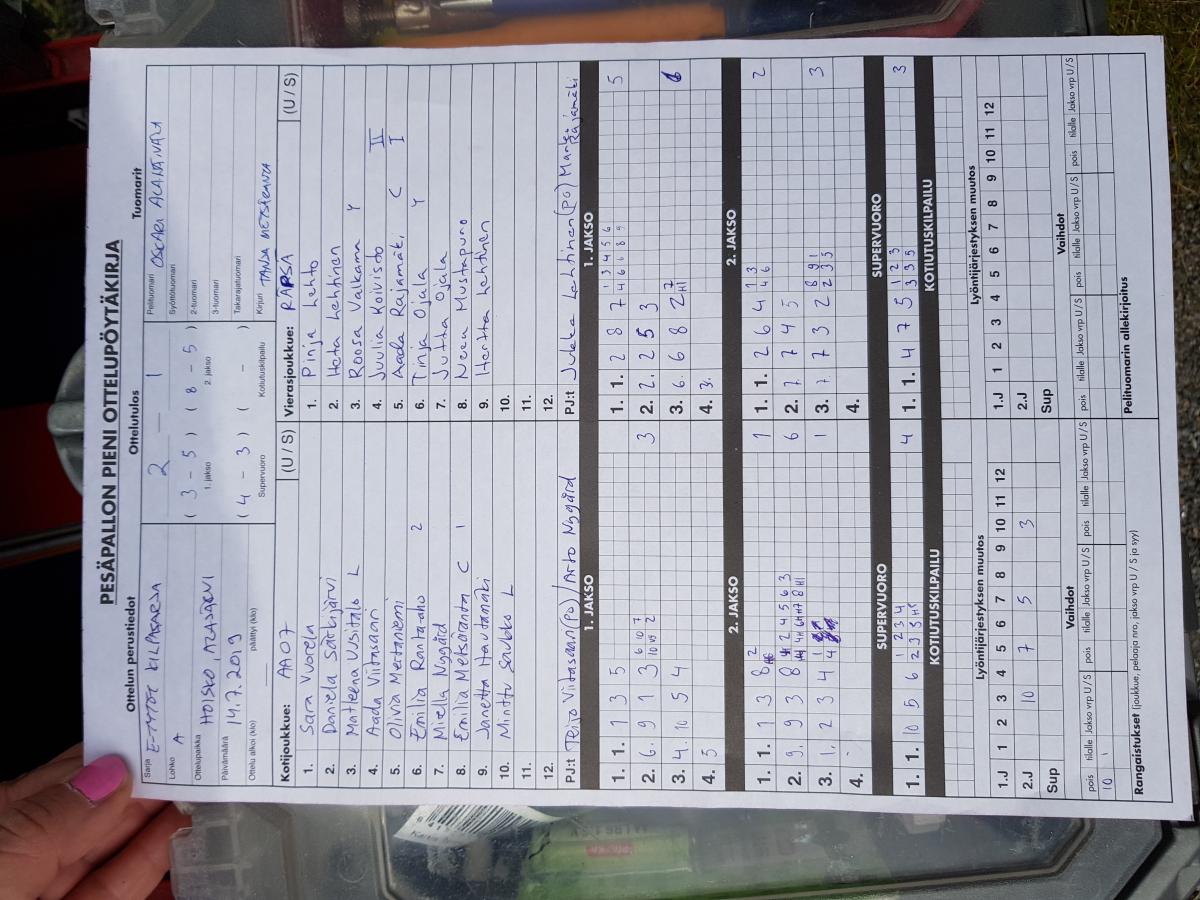 PESÄPALLON PIENI OTTELUPÖYTÄKIRJA
Ottelun perustiedot
Ottelutulos
Tuomarit
Sarja E-TYTÖT KILPASARJA
Lohko A
Ottelupaikka HOISKO, ALAJÄRVI
Päivämäärä 14.7.2019
Ottelu alkoi (klo)
päättyi (klo)
2 — 1
( 3 - 5 ) ( 8 - 5 )
1. jakso
2. jakso
( 4 - 3 ) ( - )
Supervuoro
Kotiutuskilpailu
Pelituomari OSKARI
Syöttötuomari
2-tuomari
3-tuomari
Takarajatuomari
Kirjuri TANJA METSÄRANTA
Kotijoukkue: AA07 (U / S)
1. Sara Vuorela
2. Daniela Särkijärvi
3. Matleena Uusitalo L
4. Aada Viitasaari
5. Olivia Mertaniemi
6. Emilia Rantaaho 2
7. Miella Nygård
8. Emilia Metsäranta C 1
9. Janetta Hautamäki
10. Minttu Savbko L
11.
12.
PJ:t Teijo Viitasaari (PO) / Arto Nygård
Vierasjoukkue: RÄPSÄ (U / S)
1. Pinja Lehto
2. Heta Lehtinen
3. Roosa Valkama Y
4. Juulia Koivisto II
5. Aada Rajamäki C I
6. Tinja Ojala Y
7. Jutta Ojala
8. Neea Mustapuro
9. Hertta Lehtinen
10.
11.
12.
PJ:t Jukka Lehtinen (PO) Marko Rajamäki
1. JAKSO
1. 1. 1 3 5
2. 6. 9 1 3 6 10 7 3
3. 4. 10 5 4
4. 5
1. JAKSO
1. 1. 2 8 7 1 3 4 5 6 5
4 6 6 8 9
2. 2. 2 5 3
3. 6. 6 8 2 7
H1
4. 3.
2. JAKSO
1. 1. 1 3 8 2 1
2. 9. 9 3 8 6
3. 1. 2 3 4 1
4.
2. JAKSO
1. 1. 2 6 4 1 3 2
4 6
2. 7 7 4 5
3. 7. 7 3 2 8 9 1 3
2 3 5
4.
SUPERVUORO
1. 1. 10 5 6 1 2 3 4 4
SUPERVUORO
1. 1. 4 7 5 1 2 3 3
3 3 5
KOTIUTUSKILPAILU
KOTIUTUSKILPAILU
Lyöntijärjestyksen muutos
1.J 1 2 3 4 5 6 7 8 9 10 11 12
2.J 10 7 5 3
Sup
Lyöntijärjestyksen muutos
1.J 1 2 3 4 5 6 7 8 9 10 11 12
2.J
Sup
Vaihdot
pois tilalle Jakso vrp U / S pois tilalle Jakso vrp U / S pois tilalle Jakso vrp U / S
10 1
Vaihdot
pois tilalle Jakso vrp U / S pois tilalle Jakso vrp U / S pois tilalle Jakso vrp U / S
Rangaistukset (joukkue, pelaaja nro, jakso vrp, U / S ja syy)
Pelituomarin allekirjoitus